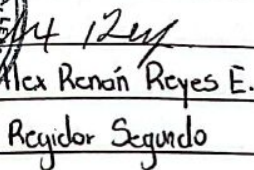 Alex Renán Reyes E.
Regidor Segundo